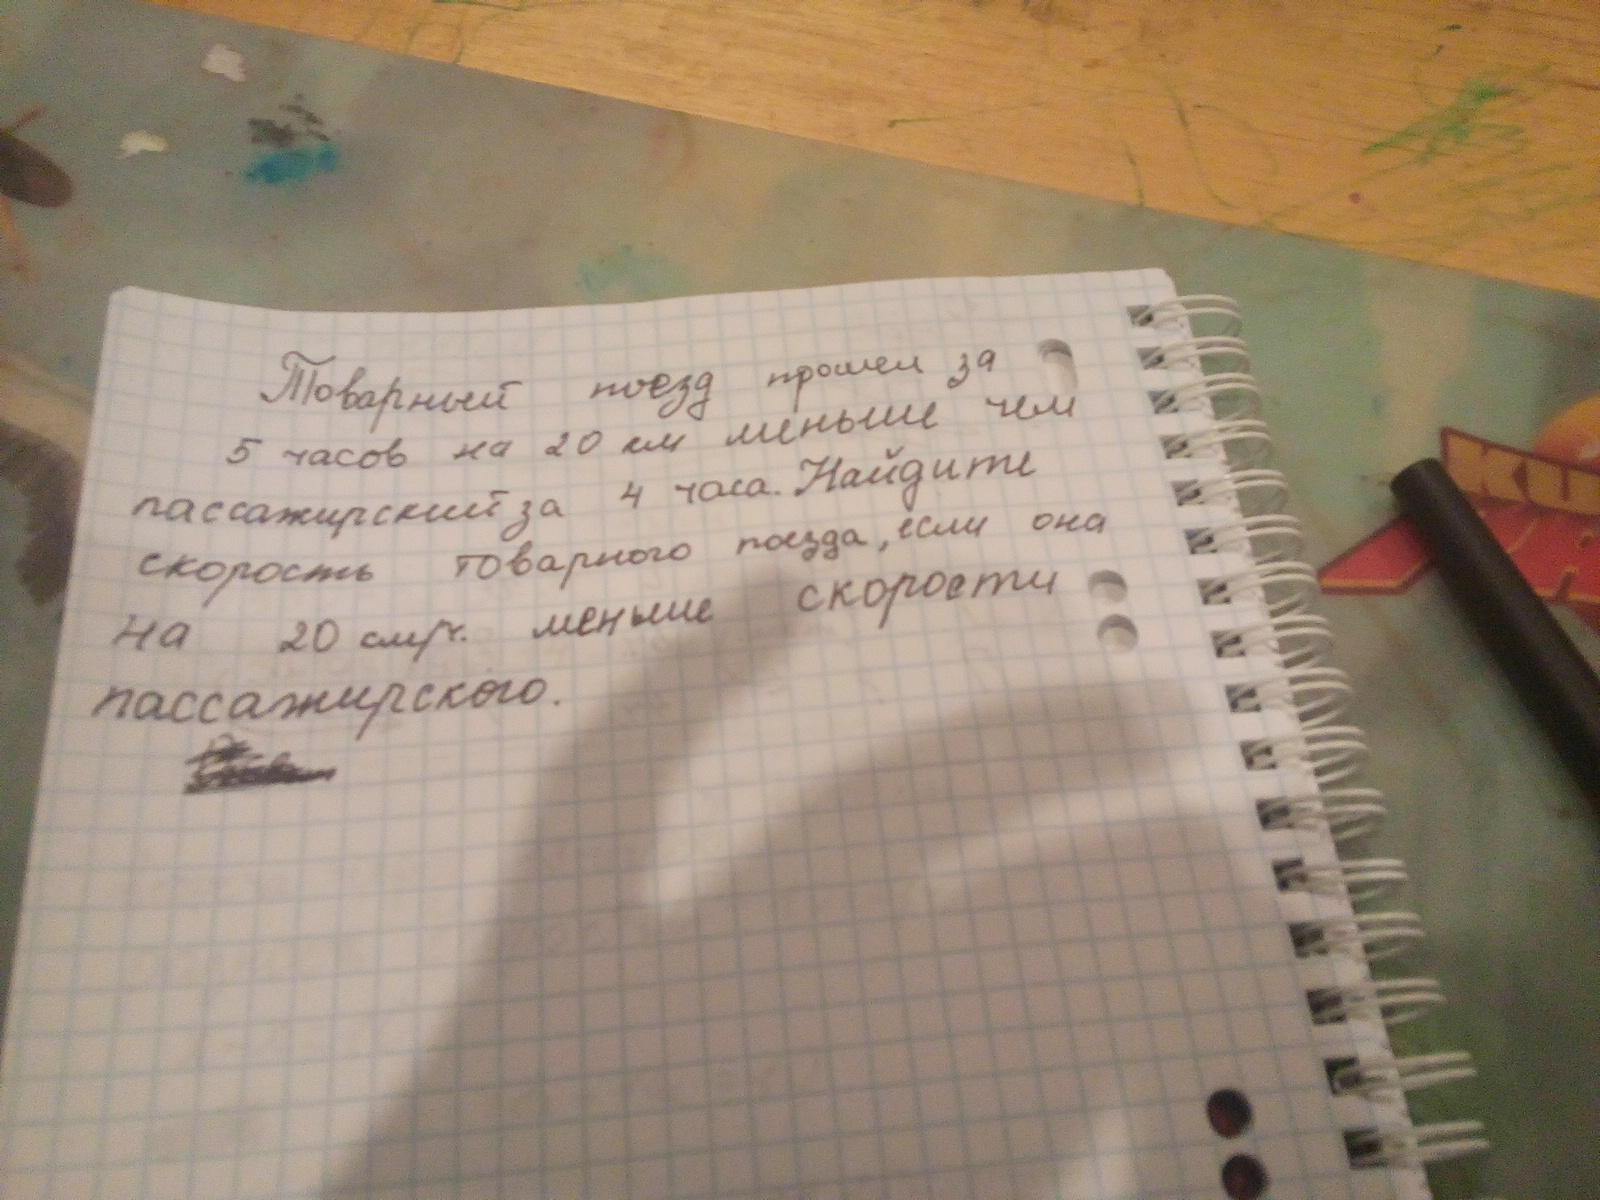 Товарный поезд прошел за
5 часов на 20 км меньше чем
пассажирский за 4 часа. Найдите
скорость товарного поезда, если она
на 20 км/ч. меньше скорости
пассажирского.